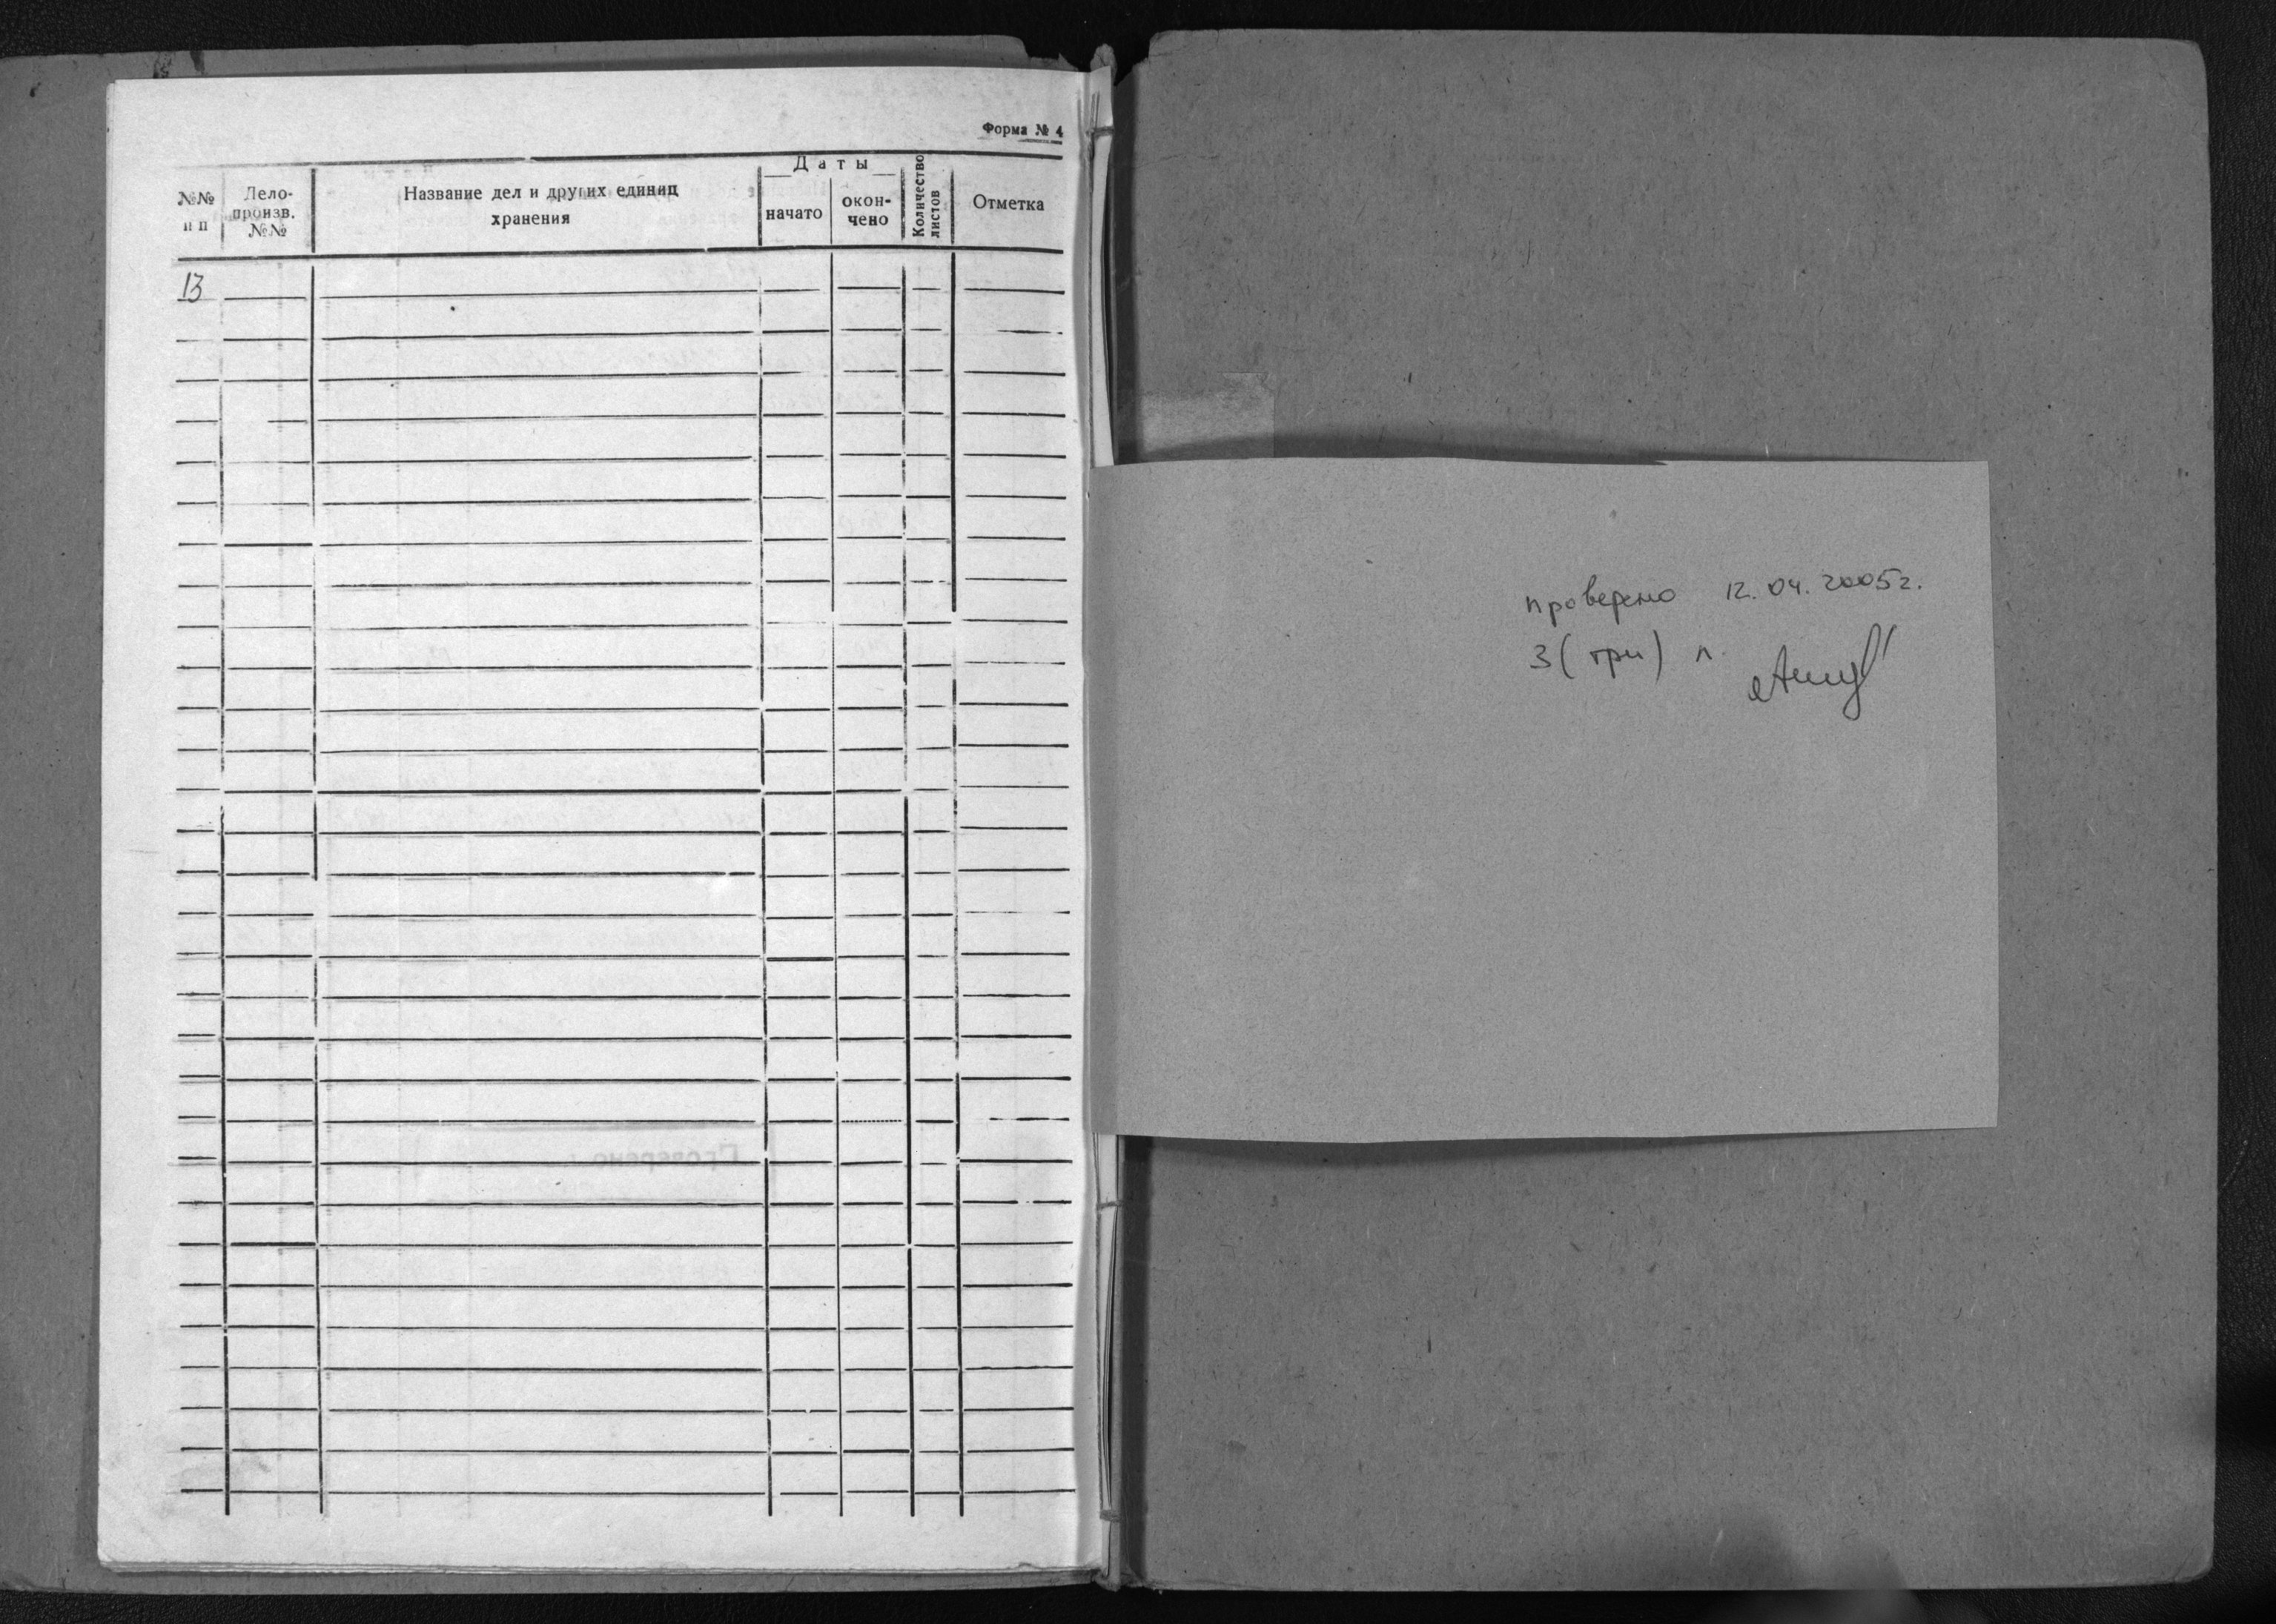 Форма № 4
№№ п п
Дело-произв. №№
Название дел и других единиц хранения
Даты
начато
окон-чено
Количество листов
Отметка
13
проверено 12.04.2005г.
3 (три) л.